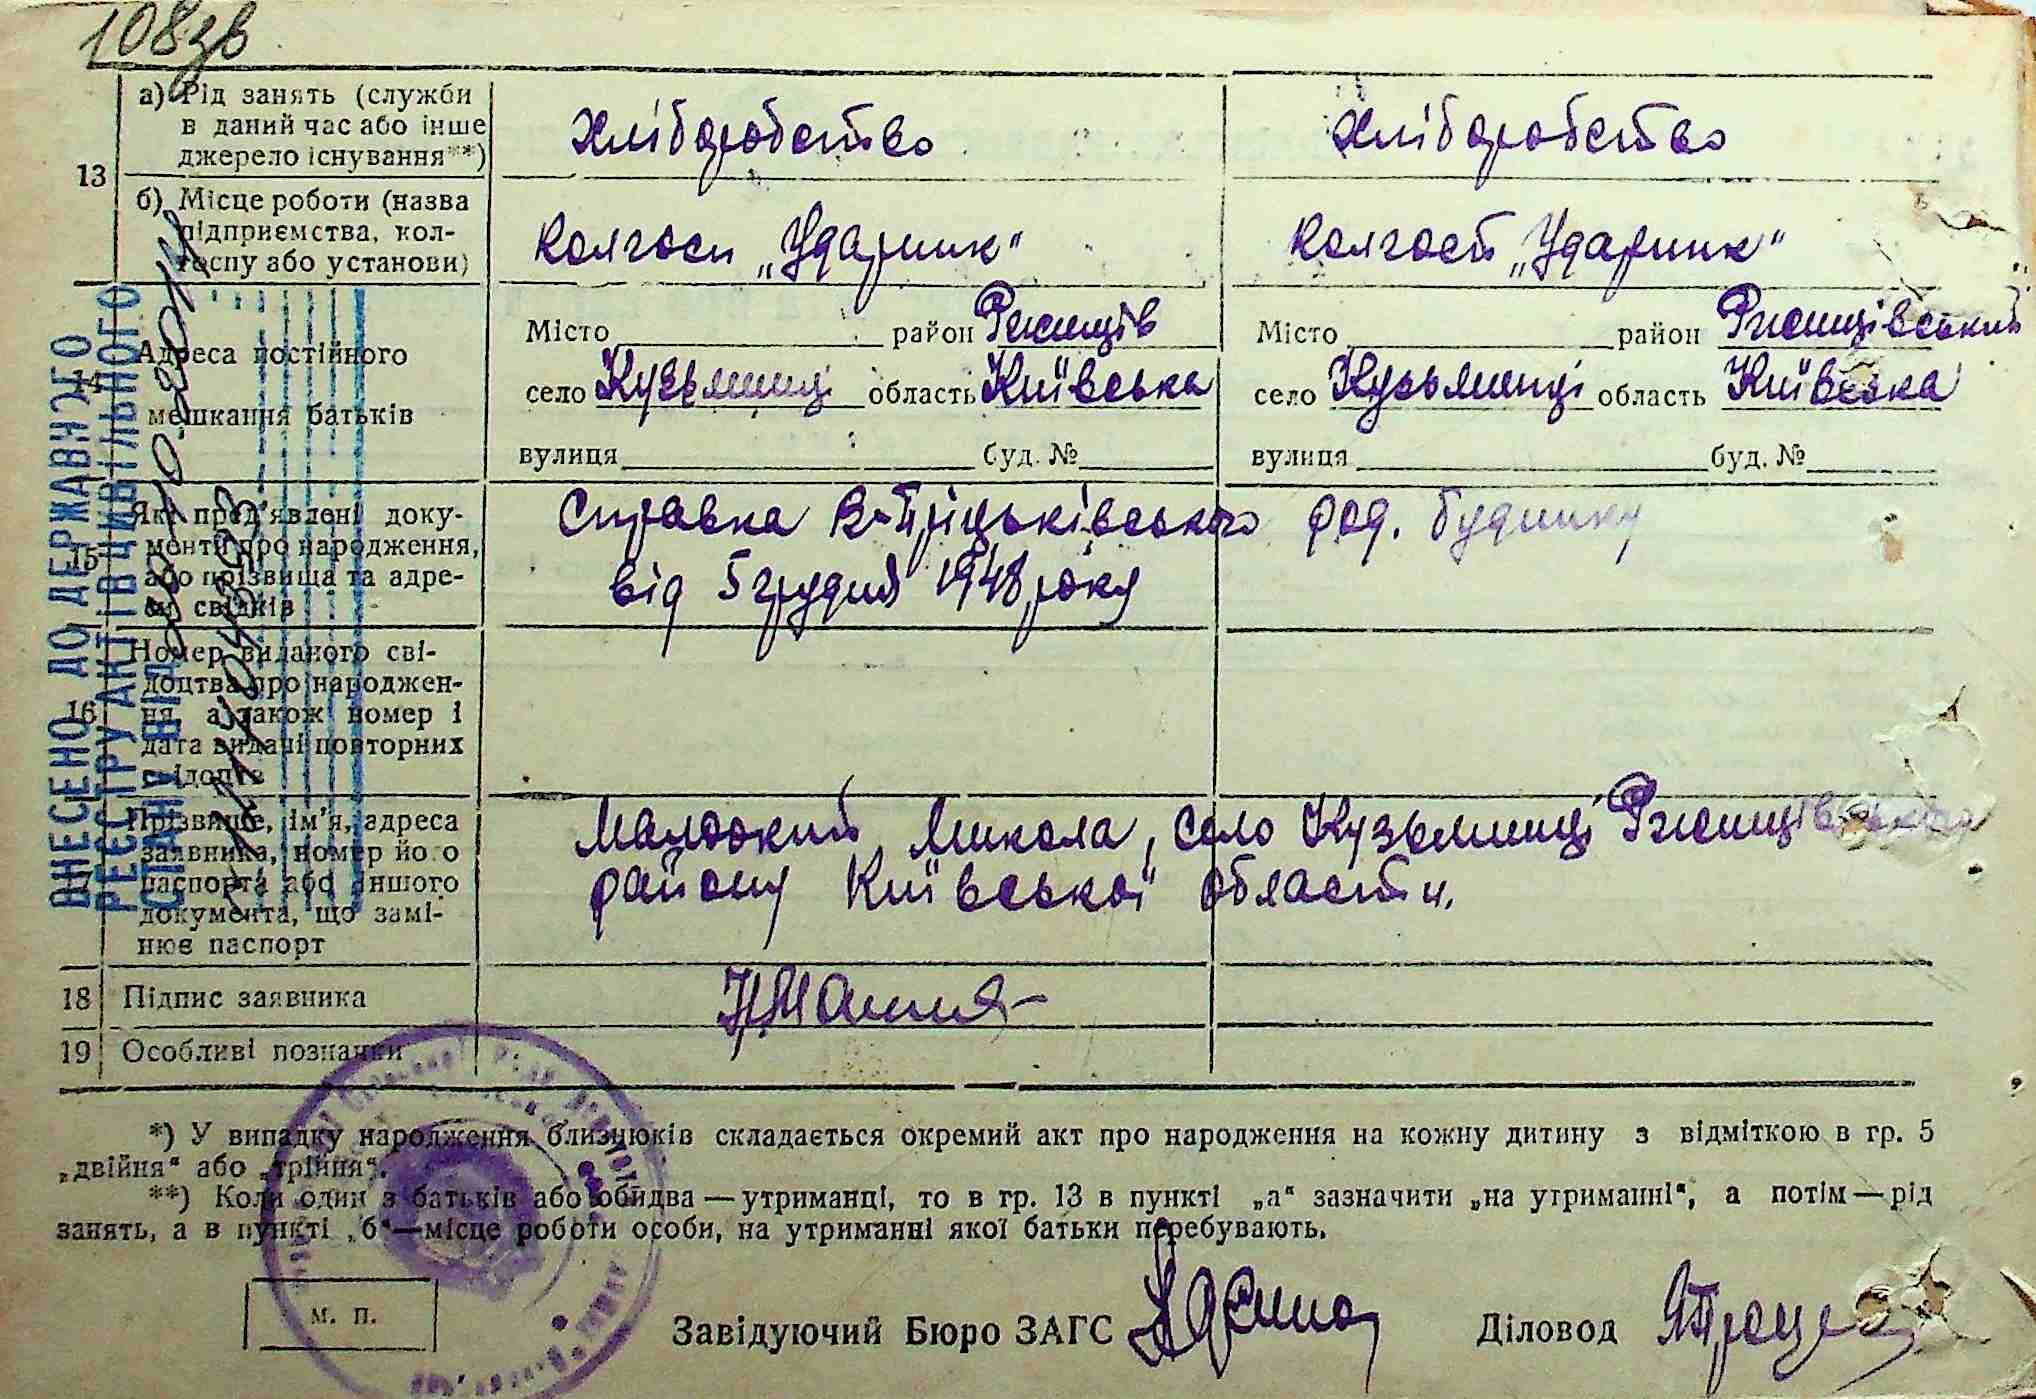 108зв
13
а) Рід занять (служби
в даний час або інше
джерело існування**)
хліборобство
хліборобство
б) Місце роботи (назва
підприємства, кол-
госпу або установи)
колгосп „Ударник“
колгосп „Ударник“
14
Адреса постійного
мешкання батьків
Місто район Ржищів
село Кузьминці область Київська
вулиця буд. №
Місто район Ржищівський
село Кузьминці область Київська
вулиця буд. №
15
Які пред'явлені доку-
менти про народження,
або прізвища та адре-
си свідків
Справка В-Пріцьківського род. будинку
від 5 грудня 1948 року
16
Номер виданого сві-
доцтва про народжен-
ня, а також номер і
дата видачі повторних
свідоцтв
17
Прізвище, ім'я, адреса
заявника, номер його
паспорта або іншого
документа, що замі-
нює паспорт
Микола, село Кузьминці Ржищівського
району Київської области.
18 Підпис заявника
19 Особливі позначки
ВНЕСЕНО ДО ДЕРЖАВНОГО
РЕЄСТРУ АКТІВ ЦИВІЛЬНОГО
СТАНУ ВІД
*) У випадку народження близнюків складається окремий акт про народження на кожну дитину з відміткою в гр. 5
„двійня“ або „трійня“.
**) Коли один з батьків або обидва — утриманці, то в гр. 13 в пункті „а“ зазначити „на утриманні“, а потім — рід
занять, а в пункті „б“ — місце роботи особи, на утриманні якої батьки перебувають.
М. П.
Завідуючий Бюро ЗАГС
Діловод